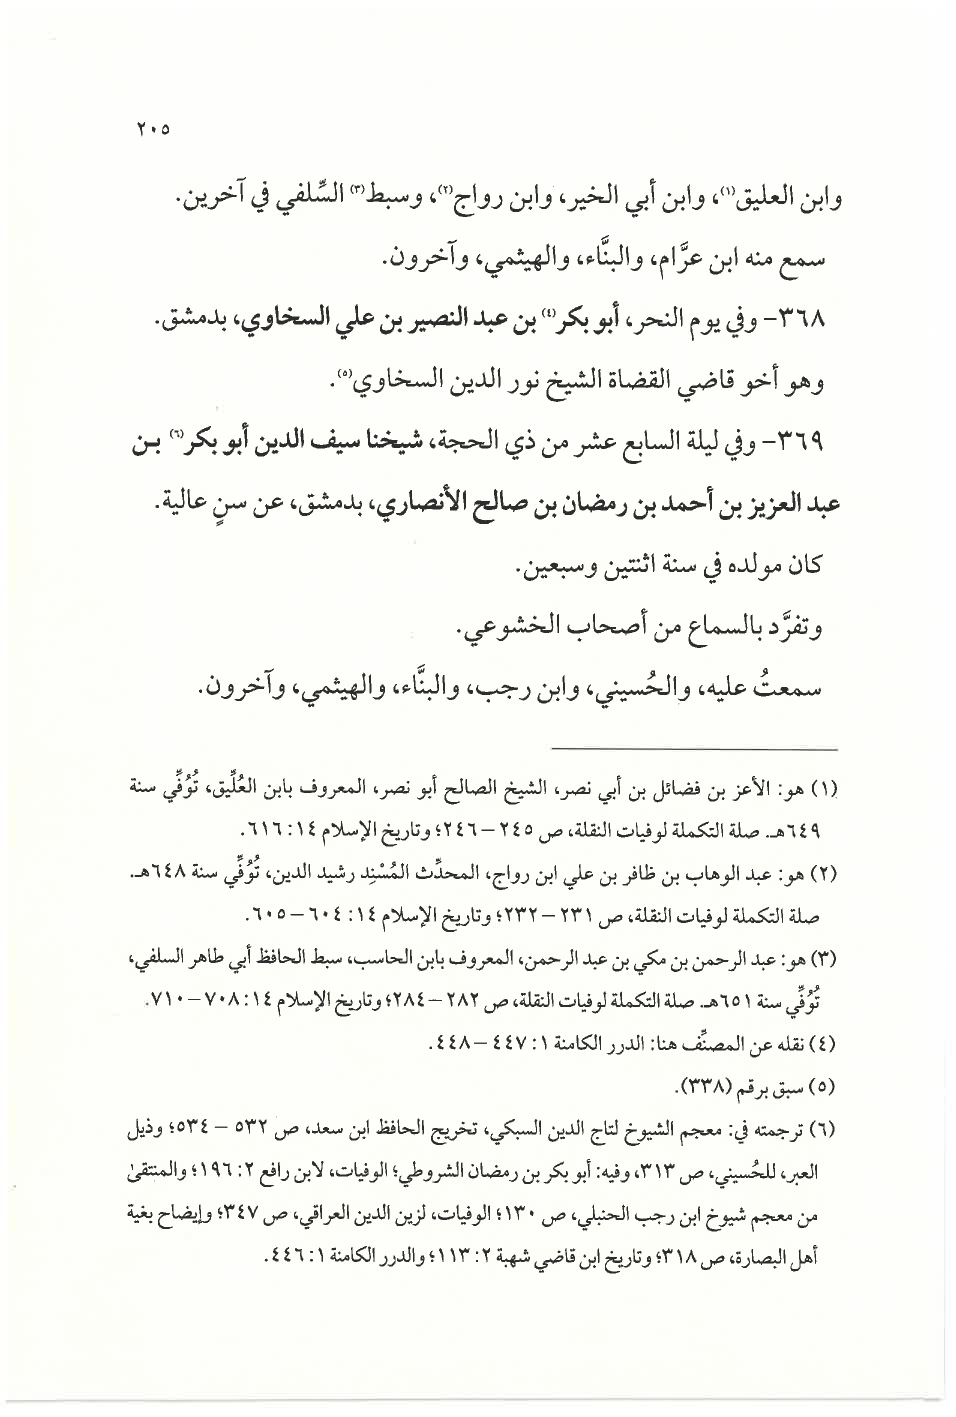 ٢٠٥
وابن العليق(١)، وابن أبي الخير، وابن رواج(٢)، وسبط(٣) السِّلفي في آخرين.
سمع منه ابن عرَّام، والبنَّاء، والهيثمي، وآخرون.
٣٦٨- وفي يوم النحر، أبو بكر(٤) بن عبد النصير بن علي السخاوي، بدمشق.
وهو أخو قاضي القضاة الشيخ نور الدين السخاوي(٥).
٣٦٩- وفي ليلة السابع عشر من ذي الحجة، شيخنا سيف الدين أبو بكر(٦) بـن
عبد العزيز بن أحمد بن رمضان بن صالح الأنصاري، بدمشق، عن سنٍ عالية.
كان مولده في سنة اثنتين وسبعين.
وتفرَّد بالسماع من أصحاب الخشوعي.
سمعتُ عليه، والحُسيني، وابن رجب، والبنَّاء، والهيثمي، وآخرون.
(١) هو: الأعز بن فضائل بن أبي نصر، الشيخ الصالح أبو نصر، المعروف بابن العُلِّيق، تُوُفِّي سنة
٦٤٩هـ. صلة التكملة لوفيات النقلة، ص ٢٤٥-٢٤٦؛ وتاريخ الإسلام ١٤: ٦١٦.
(٢) هو: عبد الوهاب بن ظافر بن علي ابن رواج، المحدِّث المُسْنِد رشيد الدين، تُوُفِّي سنة ٦٤٨هـ.
صلة التكملة لوفيات النقلة، ص ٢٣١-٢٣٢؛ وتاريخ الإسلام ١٤: ٦٠٤-٦٠٥.
(٣) هو: عبد الرحمن بن مكي بن عبد الرحمن، المعروف بابن الحاسب، سبط الحافظ أبي طاهر السلفي،
تُوُفِّي سنة ٦٥١هـ. صلة التكملة لوفيات النقلة، ص ٢٨٢-٢٨٤؛ وتاريخ الإسلام ١٤: ٧٠٨-٧١٠.
(٤) نقله عن المصنِّف هنا: الدرر الكامنة ١: ٤٤٧-٤٤٨.
(٥) سبق برقم (٣٣٨).
(٦) ترجمته في: معجم الشيوخ لتاج الدين السبكي، تخريج الحافظ ابن سعد، ص ٥٣٢ - ٥٣٤؛ وذيل
العبر، للحُسيني، ص ٣١٣، وفيه: أبو بكر بن رمضان الشروطي؛ الوفيات، لابن رافع ٢: ١٩٦؛ والمنتقىٰ
من معجم شيوخ ابن رجب الحنبلي، ص ١٣٠؛ الوفيات، لزين الدين العراقي، ص ٣٤٧؛ وإيضاح بغية
أهل البصارة، ص ٣١٨؛ وتاريخ ابن قاضي شهبة ٢: ١١٣؛ والدرر الكامنة ١: ٤٤٦.